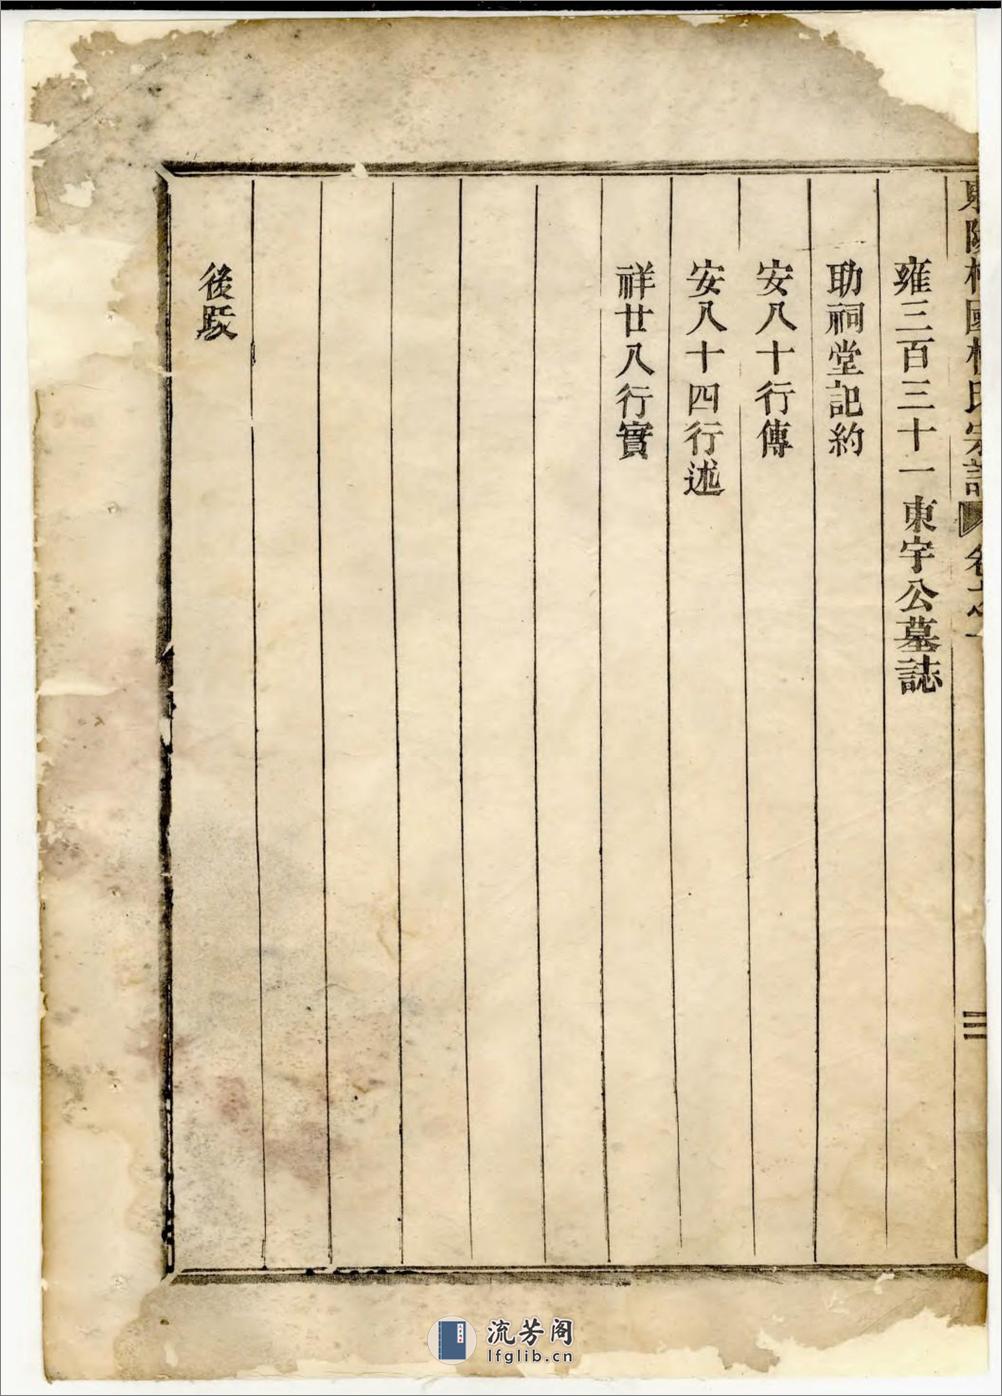 國 氏宗譜 卷之一
三
雍三百三十一 東宇公墓誌
助祠堂記約
安八十行傳
安八十四行述
祥廿八行實
後跋
流芳阁
lfglib.cn